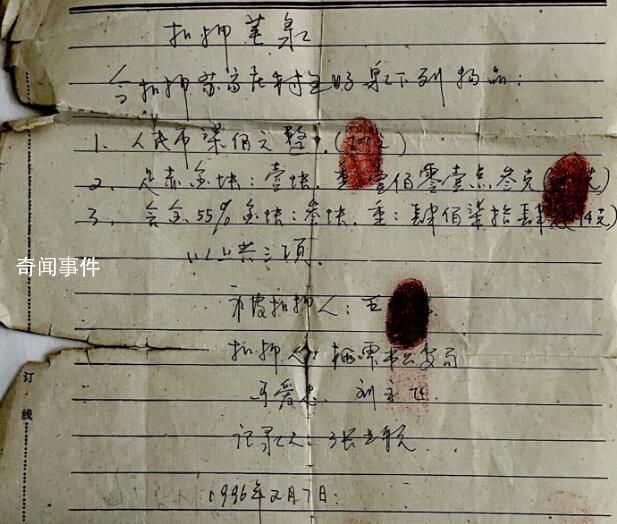 扣押笔录
今扣押苏家庄村王明泉下列物品：
1、人民币柒佰元整.(700元)
2、足赤金块：壹块.重：壹佰零壹点叁克(克)
3、含金55%金块：叁块.重：肆佰柒拾肆克(474克)
以上共三项.
奇闻事件
被扣押人：王
扣押人：栖霞市公安局
订
刘
线
记录人：张
1996年2月7日.